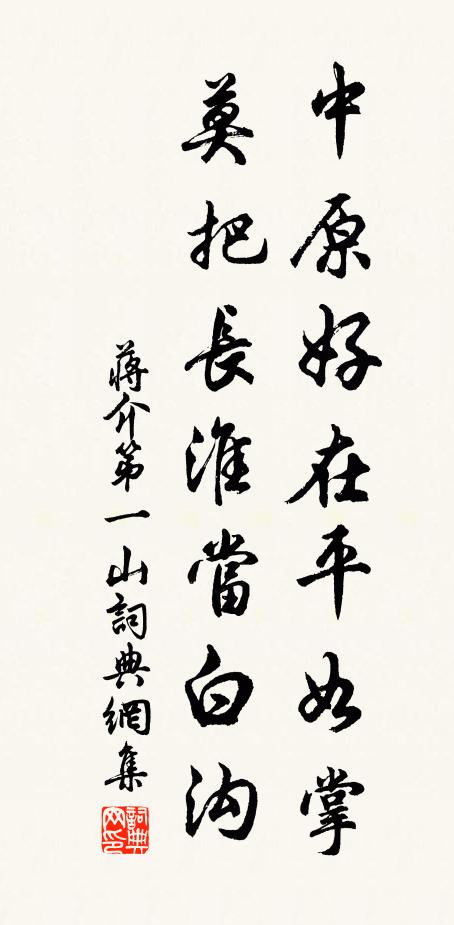 中原好在平如掌
莫把長淮當白沟
蔣介第一山詞典網集
詞典网印